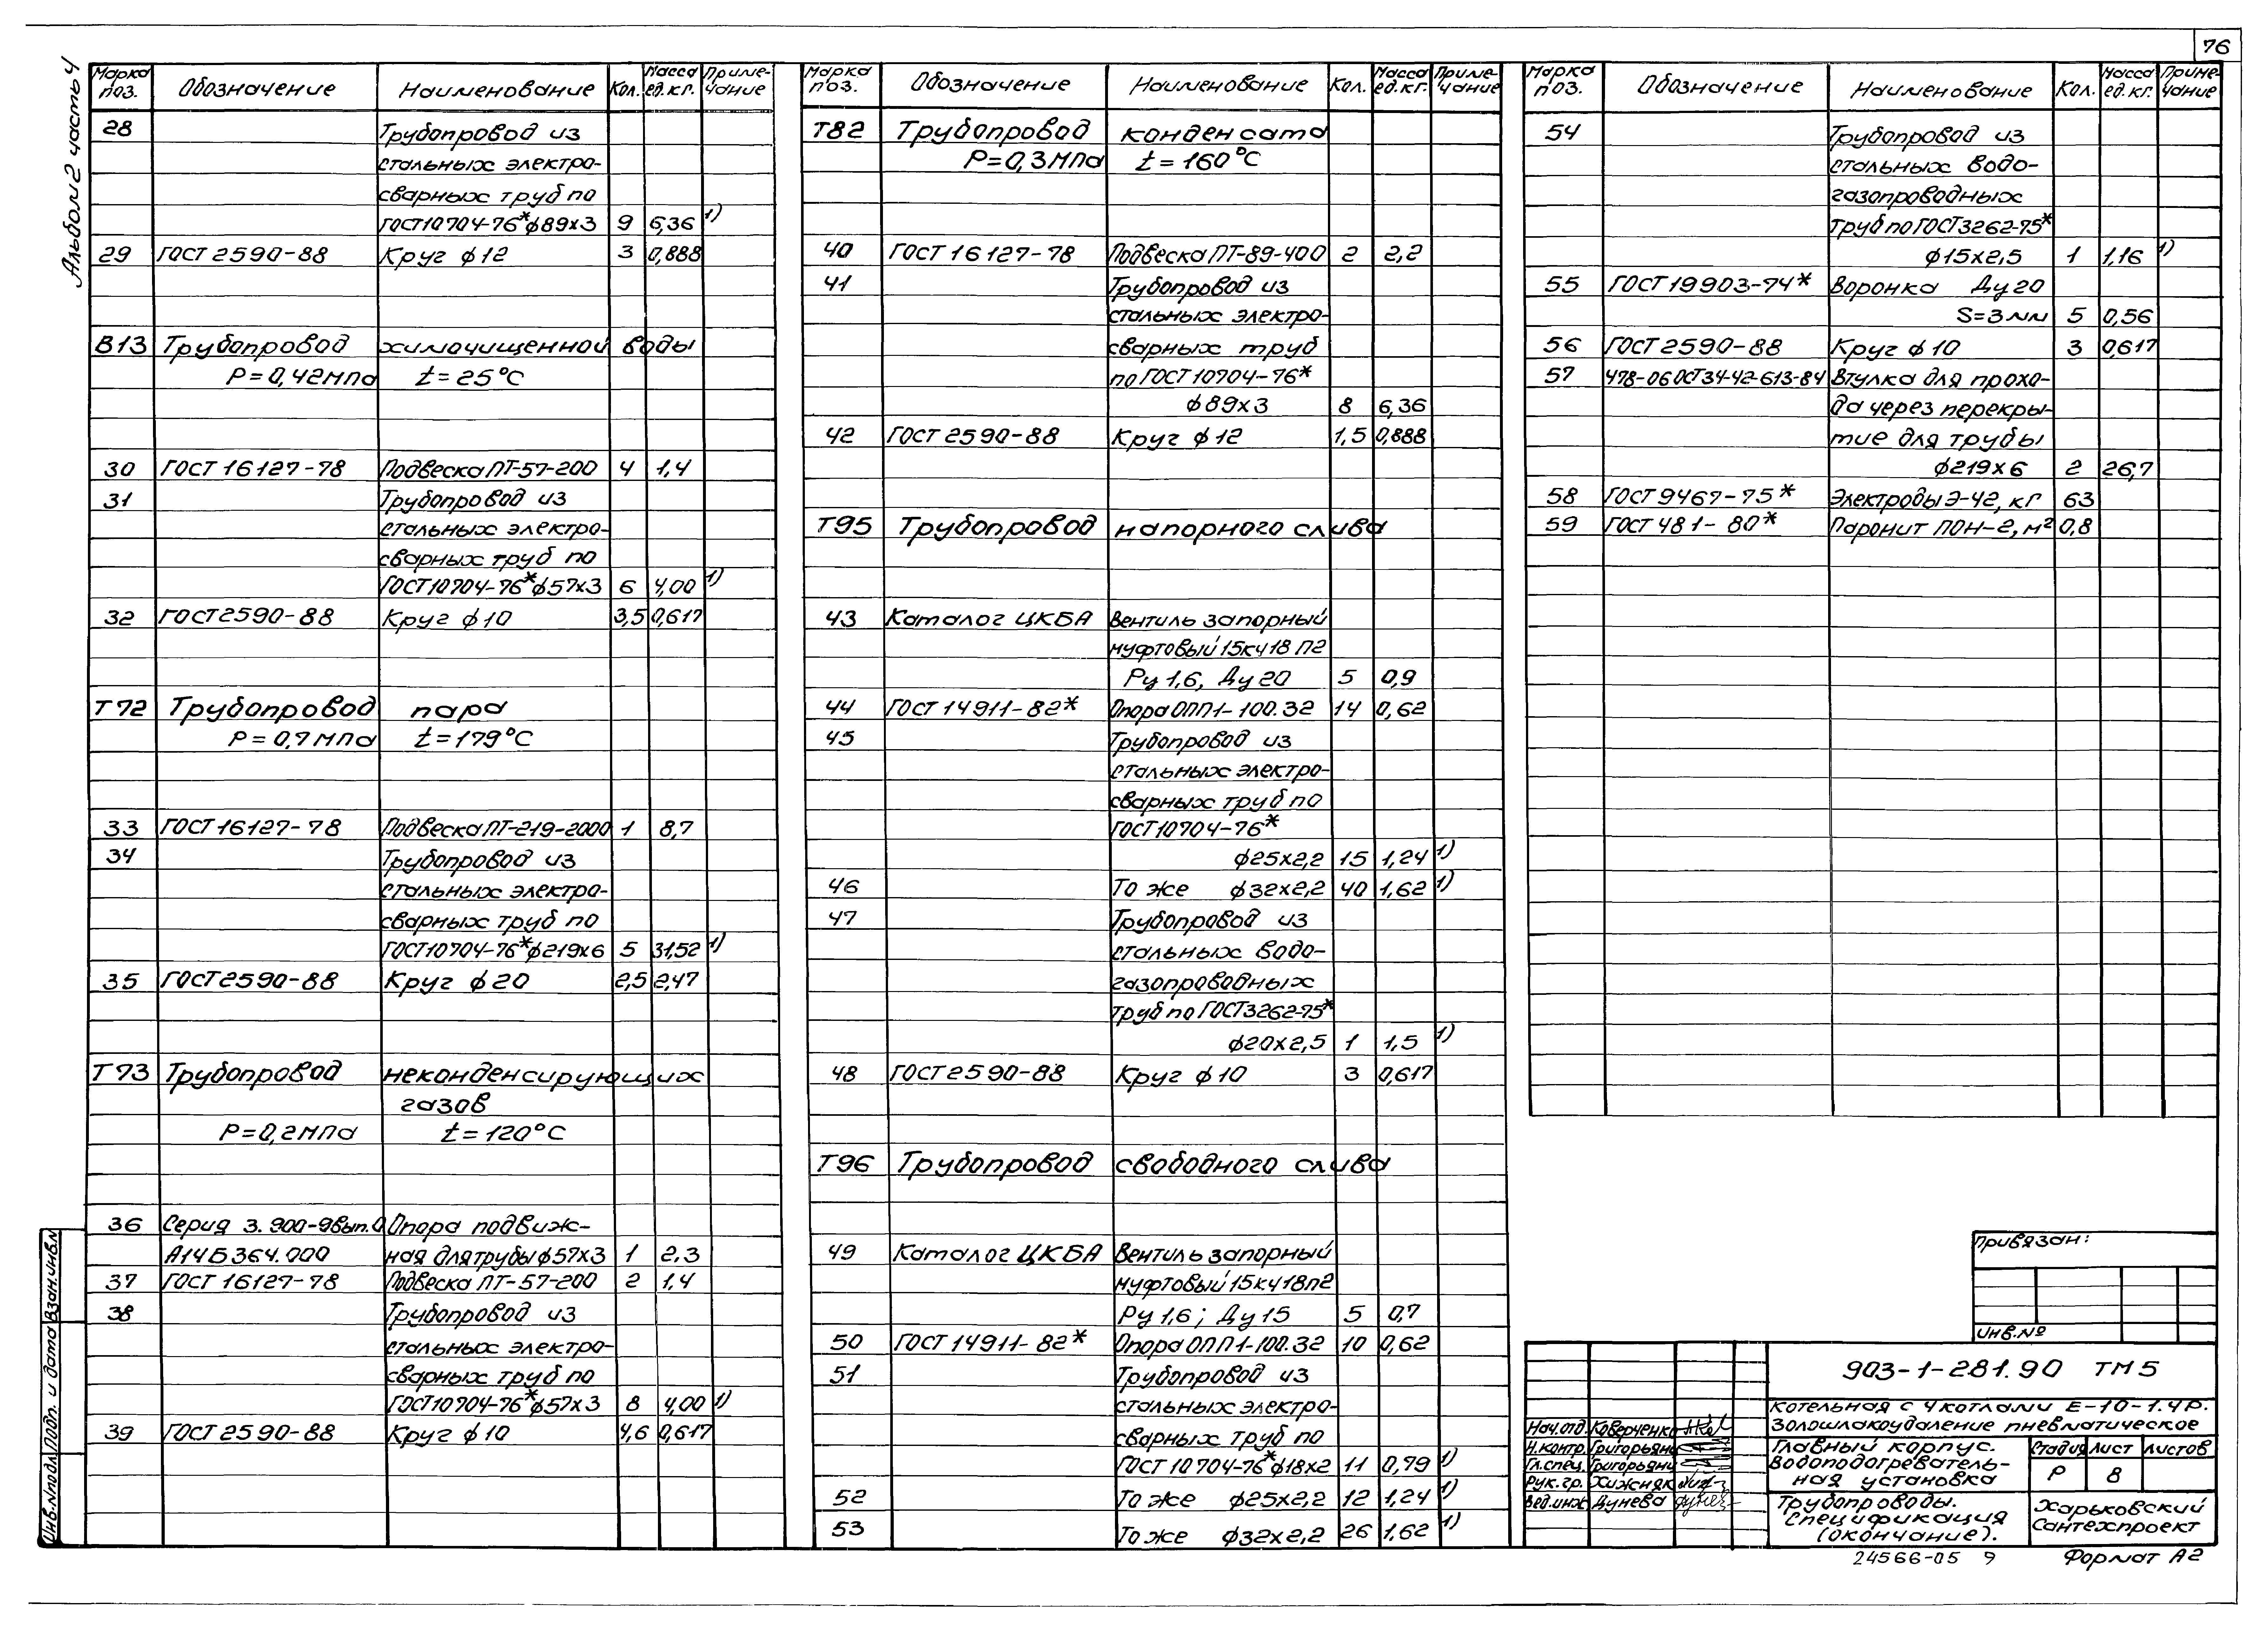 76
Альбом 2 часть 4
Марка поз. Обозначение Наименование Кол. Масса ед.кг. Примечание
28 Трубопровод из
стальных электро-
сварных труб по
ГОСТ10704-76* ф89х3 9 6,36 1)
29 ГОСТ 2590-88 Круг ф12 3 0,888
В13 Трубопровод химочищенной воды
Р=0,42МПа t=25°С
30 ГОСТ 16127-78 Подвеска ПТ-57-200 4 1,4
31 Трубопровод из
стальных электро-
сварных труб по
ГОСТ10704-76* ф57х3 6 4,00 1)
32 ГОСТ2590-88 Круг ф10 3,5 0,617
Т72 Трубопровод пара
Р=0,7МПа t=179°С
33 ГОСТ16127-78 Подвеска ПТ-219-2000 1 8,7
34 Трубопровод из
стальных электро-
сварных труб по
ГОСТ10704-76* ф219х6 5 31,52 1)
35 ГОСТ2590-88 Круг ф20 2,5 2,47
Т73 Трубопровод неконденсирующих
газов
Р=0,2МПа t=120°С
36 Серия 3.900-9вып.0 Опора подвиж-
А14Б364.000 ная для трубы ф57х3 1 2.3
37 ГОСТ 16127-78 Подвеска ПТ-57-200 2 1,4
38 Трубопровод из
стальных электро-
сварных труб по
ГОСТ10704-76* ф57х3 8 4,00 1)
39 ГОСТ 2590-88 Круг ф10 4,6 0,617
Марка поз. Обозначение Наименование Кол. Масса ед.кг. Примечание
Т82 Трубопровод конденсата
Р=0,3МПа t=160°С
40 ГОСТ 16127-78 Подвеска ПТ-89-400 2 2,2
41 Трубопровод из
стальных электро-
сварных труб
по ГОСТ 10704-76*
ф89х3 8 6,36
42 ГОСТ 2590-88 Круг ф12 1,5 0,888
Т95 Трубопровод напорного слива
43 Каталог ЦКБА Вентиль запорный
муфтовый 15кч18 П2
Ру 1,6, Ду 20 5 0,9
44 ГОСТ 14911-82* Опора ОПП1-100.32 14 0,62
45 Трубопровод из
стальных электро-
сварных труб по
ГОСТ10704-76*
ф25х2,2 15 1,24 1)
46 То же ф32х2,2 40 1,62 1)
47 Трубопровод из
стальных водо-
газопроводных
труб по ГОСТ3262-75*
ф20х2,5 1 1,5 1)
48 ГОСТ2590-88 Круг ф10 3 0,617
Т96 Трубопровод свободного слива
49 Каталог ЦКБА Вентиль запорный
муфтовый 15кч18п2
Ру 1,6; Ду 15 5 0,7
50 ГОСТ 14911-82* Опора ОПП1-100.32 10 0,62
51 Трубопровод из
стальных электро-
сварных труб по
ГОСТ 10704-76* ф18х2 11 0,79 1)
52 То же ф25х2,2 12 1,24 1)
53 То же ф32х2,2 26 1,62 1)
Марка поз. Обозначение Наименование Кол. Масса ед.кг. Примечание
54 Трубопровод из
стальных водо-
газопроводных
труб по ГОСТ3262-75*
ф15х2,5 1 1,16 1)
55 ГОСТ 19903-74* Воронка Ду 20
S=3мм 5 0,56
56 ГОСТ 2590-88 Круг ф10 3 0,617
57 478-06ОСТ34-42-613-84 Втулка для прохо-
да через перекры-
тие для трубы
ф219х6 2 26,7
58 ГОСТ 9467-75* Электроды Э-42, кг 63
59 ГОСТ 481-80* Паронит ПОН-2, м² 0,8
Привязан:
Инв.№
903-1-281.90 ТМ5
Котельная с 4 котлами Е-10-1.4Р.
Золошлакоудаление пневматическое
Нач.отд. Коверченко
Н.контр. Григорьянц
Гл.спец. Григорьянц
Рук.гр. Хижняк
Вед.инж Дунева
Главный корпус.
Водоподогреватель-
ная установка
Стадия Лист Листов
Р 8
Трубопроводы.
Спецификация
(окончание).
Харьковский
Сантехпроект
24566-05 9 Формат А2
Инв.№подл. Подп. и дата Взам.инв.№